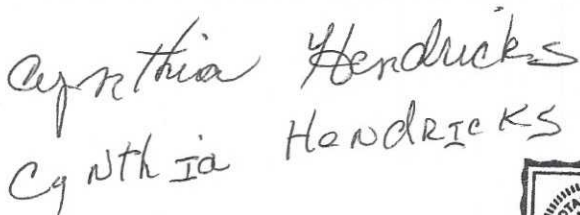 Cynthia Hendricks
CyNthIa HeNdRIcKS